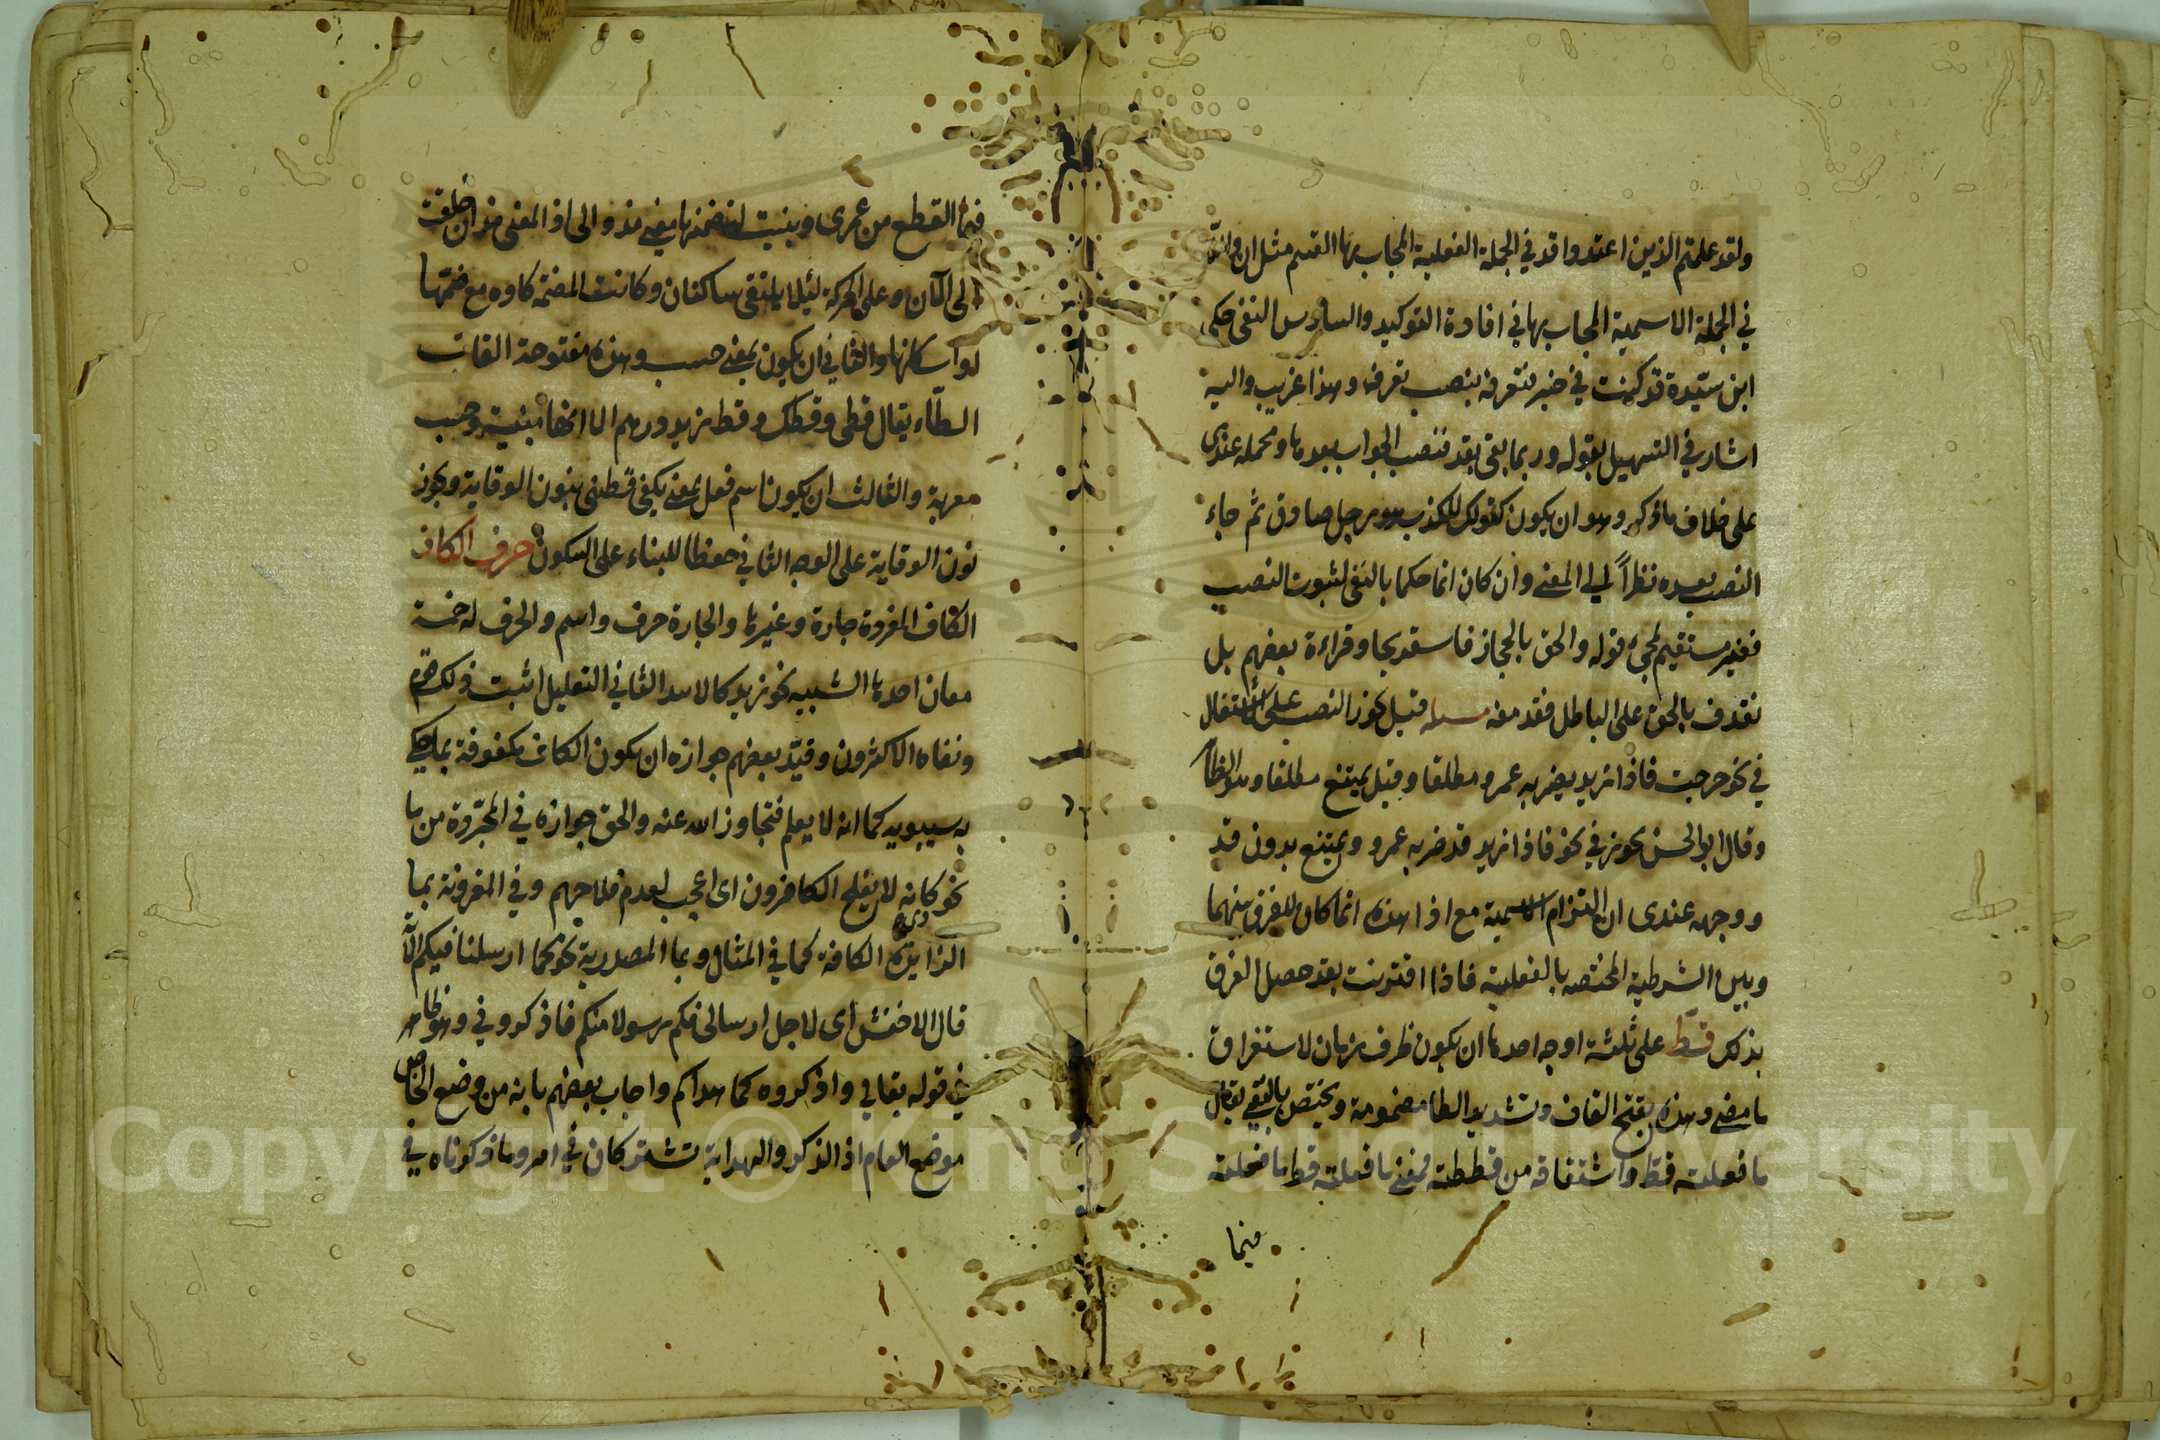 ولقد علمتم الذين اعتدوا قد في الجملة الفعلية المجاب بها القسم مثل ان واللام
في الجملة الاسمية المجاب بها في افادة التوكيد والسادس النفي حكى
ابن سيدة قد كنت في خير فتعرفه بنصب تعرف وهذا غريب واليه
اشار في التسهيل بقوله وربما نفى بقد فنصب الجواب بعدها ومحمله عندي
على خلاف ما ذكر وهو ان يكون كقولك للكذوب هو رجل صادق ثم جاء
النصب بعده نظراً الى المعنى وان كان انما حكما بالنفي لثبوت النصب
فغير مستقيم لمجئ قوله والحق بالحجاز فاستريحا وقراءة بعضهم بل
نقذف بالحق على الباطل فيدمغه مسئلة قيل يجوز النصب على الاشتغال
في نحو خرجت فاذا زيد يضربه عمرو مطلقا وقيل يمتنع مطلقا وهو الظاهر
وقال ابو الحسن يجوز في نحو فاذا زيد قد ضربه عمرو ويمتنع بدون قد
ووجهه عندي ان التزام الاسمية مع اذا هذه انما كان للفرق بينهما
وبين الشرطية المختصة بالفعلية فاذا اقترنت بقد حصل الفرق
بذلك قط على ثلثة اوجه احدها ان يكون ظرف زمان لاستغراق
ما مضى وهذه بفتح القاف وتشديد الطا مضمومة ويختص بالنفي يقال
ما فعلته قط واشتقاقه من قططته فمعنى ما فعلته قط ما فعلته
فيما
فيما انقطع من عمري وبنيت لتضمنها معنى مذ والى اذ المعنى مذ ان خلقت
الى الآن وعلى الحركة لئلا يلتقى ساكنان وكانت الضمة
او اسكانها والثاني ان يكون بمعنى حسب وهذه مفتوحة القاف
الطاء يقال قطى وقطك وقط زيد درهم الا انها مبنية وحسب
معربة والثالث ان يكون اسم فعل بمعنى يكفى قطنى بنون الوقاية ويجوز
نون الوقاية على الوجه الثاني حفظا للبناء على السكون حرف الكاف
الكاف المفردة جارة وغيرها والجارة حرف واسم والحرف له خمسة
معان احدها التشبيه نحو زيد كالاسد الثاني التعليل اثبت ذلك قوم
ونفاه الاكثرون وقيد بعضهم جوازه ان يكون الكاف مكفوفة بما حكى
به سيبويه كما انه لا يعلم فتجاوز الله عنه والحق جوازه في المجردة من ما
نحو كانه لا يفلح الكافرون اى اعجب لعدم فلاحهم وفي المقرونة بما
الزايدة الكافة كما في المثال وبما المصدرية نحو كما ارسلنا فيكم الآ
قال الاخفش اى لاجل ارسالى فيكم رسولا منكم فاذكروني وهو ظاهر
في قوله تعالي واذكروه كما هداكم واجاب بعضهم بانه من وضع الخاص
موضع العام اذ الذكر والهداية تشتركان في امر وما ذكرناه في